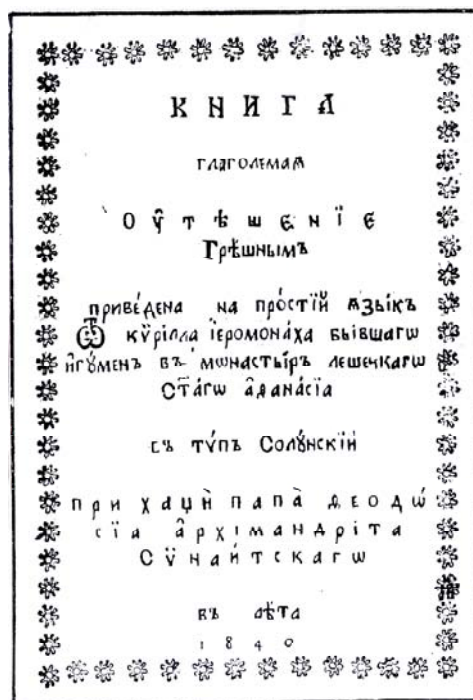 КНИГА
глаголемаѧ
Оу҆тѣшенїе
Грѣшнымъ
приве́дена на про́стїй ѧзы́къ
Ѿ кѷрілла і҆еромона́ха бы́вшагѡ
и҆гꙋ́менъ въ мѡнасты́ръ лешечкагѡ
Ст҃агѡ а҆ѳана́сїа
съ тѵ́пъ Солꙋ́нскїй
при хаџѝ папа̀ ѳеодѡ́
сїа а҆рхімандріта
Сѵна́йтскагѡ
въ лѣта
1840